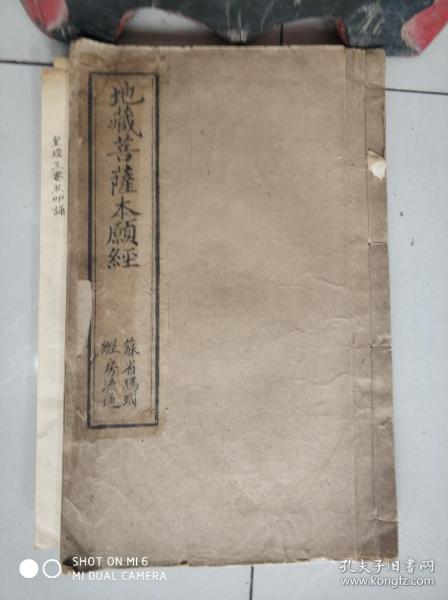 地藏菩薩本願經
蘇省瑪瑙
經房流通
SHOT ON MI 6
MI DUAL CAMERA
孔夫子旧书网
www.kongfz.com